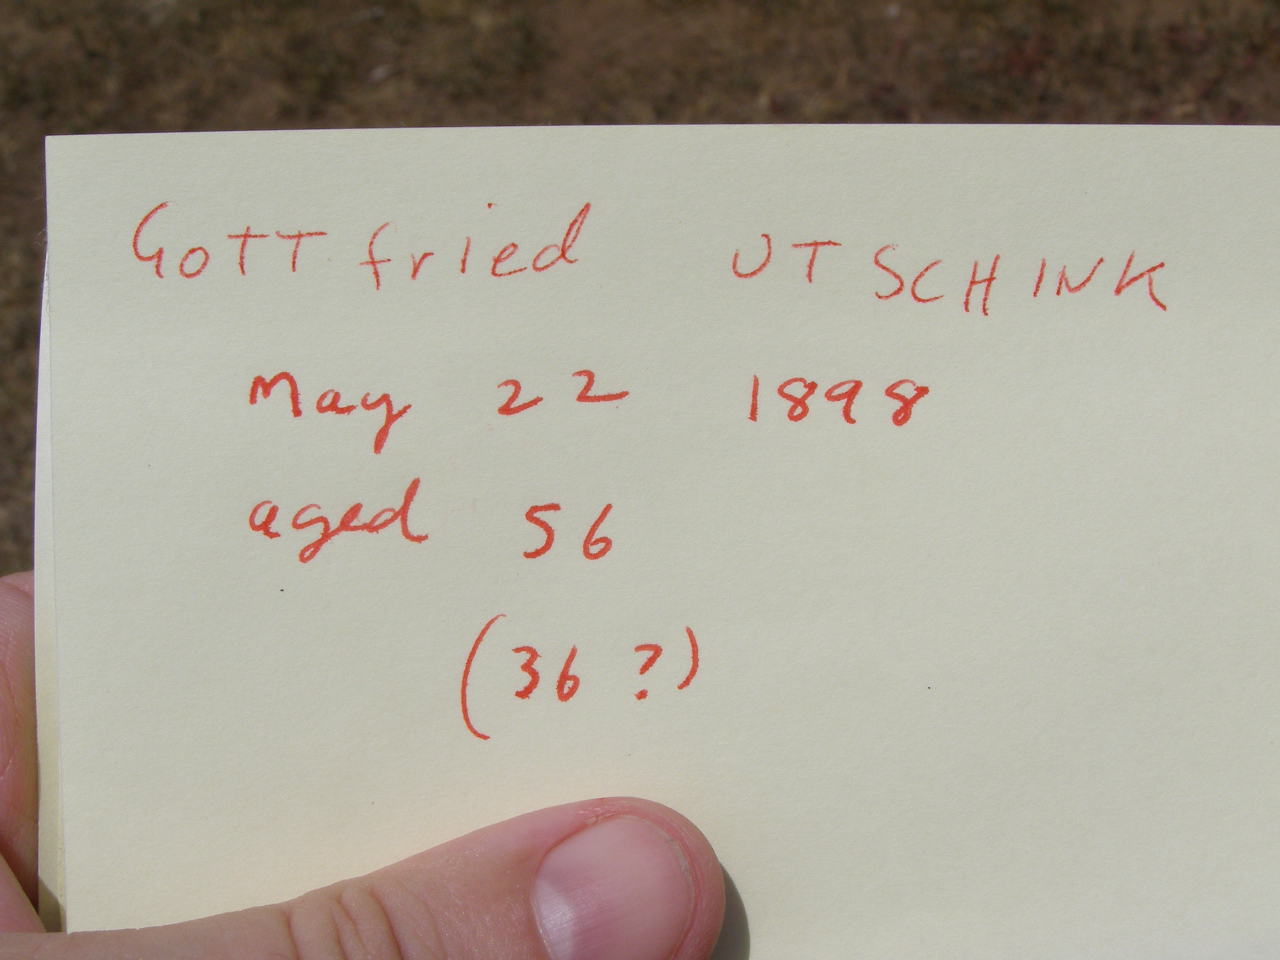 GOTTfried UTSCHINK
May 22 1898
aged 56
(36 ?)